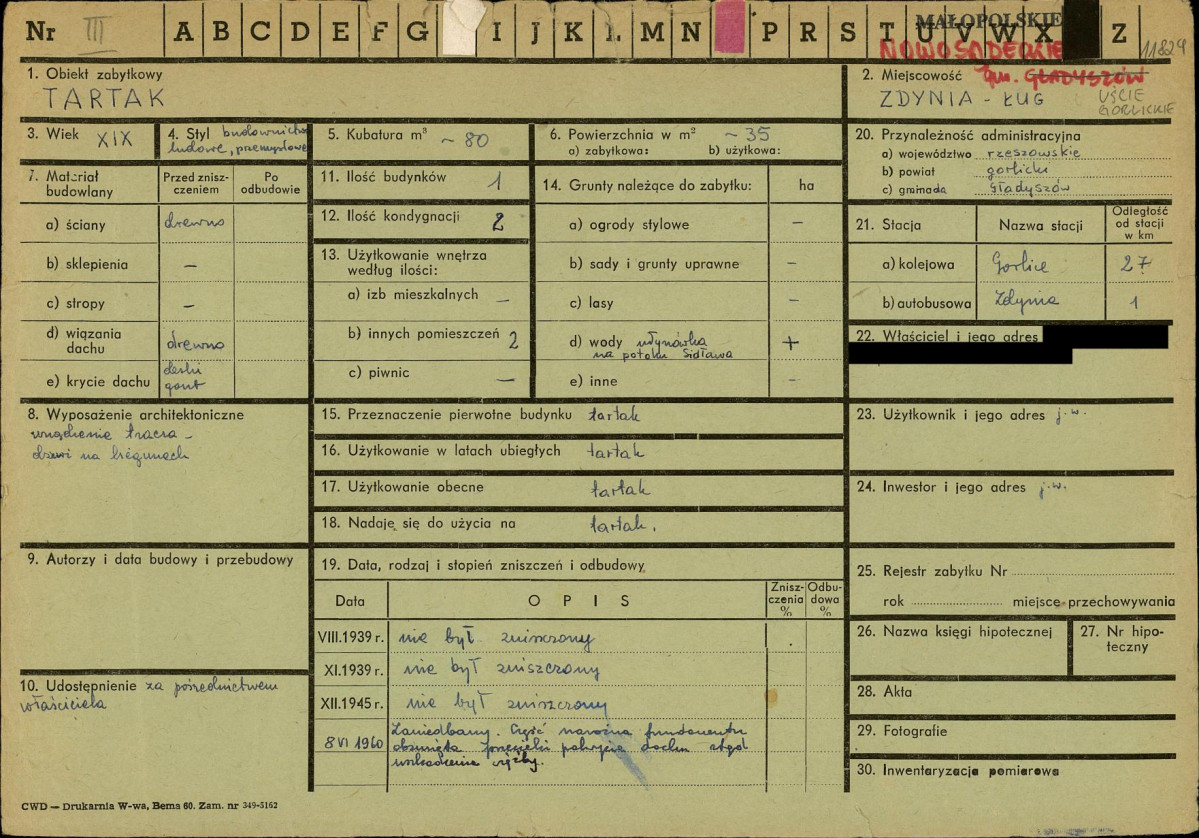 Nr III A B C D E F G I J K L M N P R S T U V W X Z
MAŁOPOLSKIE
NOWOSĄDECKIE
11829
1. Obiekt zabytkowy
TARTAK
2. Miejscowość gm. GŁADYSZÓW
ZDYNIA - ŁUG
UŚCIE
GORLICKIE
3. Wiek XIX
4. Styl budownictwo
ludowe, przemysłowe
5. Kubatura m³ ~ 80
6. Powierzchnia w m² ~ 35
a) zabytkowa: b) użytkowa:
7. Materiał budowlany
Przed zniszczeniem
Po odbudowie
a) ściany drewno
b) sklepienia –
c) stropy –
d) wiązania dachu drewno
e) krycie dachu deski
gont
8. Wyposażenie architektoniczne
urządzenie tracza –
drzwi na biegunach
9. Autorzy i data budowy i przebudowy
10. Udostępnienie za pośrednictwem
właściciela
11. Ilość budynków 1
12. Ilość kondygnacji 2
13. Użytkowanie wnętrza
według ilości:
a) izb mieszkalnych –
b) innych pomieszczeń 2
c) piwnic –
14. Grunty należące do zabytku: ha
a) ogrody stylowe –
b) sady i grunty uprawne –
c) lasy –
d) wody młynówka +
na potoku Sidława
e) inne –
15. Przeznaczenie pierwotne budynku tartak
16. Użytkowanie w latach ubiegłych tartak
17. Użytkowanie obecne tartak
18. Nadaje się do użycia na tartak.
19. Data, rodzaj i stopień zniszczeń i odbudowy
Data OPIS Zniszczenia % Odbudowa %
VIII.1939 r. nie był zniszczony
XI.1939 r. nie był zniszczony
XII.1945 r. nie był zniszczony
8 VI 1960 Zaniedbany. Część narożna fundamentu
obsunięta przecieki pokrycia dachu stąd
uszkodzenia więźby.
20. Przynależność administracyjna
a) województwo rzeszowskie
b) powiat gorlicki
c) gromada Gładyszów
21. Stacja Nazwa stacji Odległość od stacji w km
a) kolejowa Gorlice 27
b) autobusowa Zdynia 1
22. Właściciel i jego adres
23. Użytkownik i jego adres j.w.
24. Inwestor i jego adres j.w.
25. Rejestr zabytku Nr
rok miejsce przechowywania
26. Nazwa księgi hipotecznej
27. Nr hipoteczny
28. Akta
29. Fotografie
30. Inwentaryzacja pomiarowa
CWD — Drukarnia W-wa, Bema 60. Zam. nr 349-5162